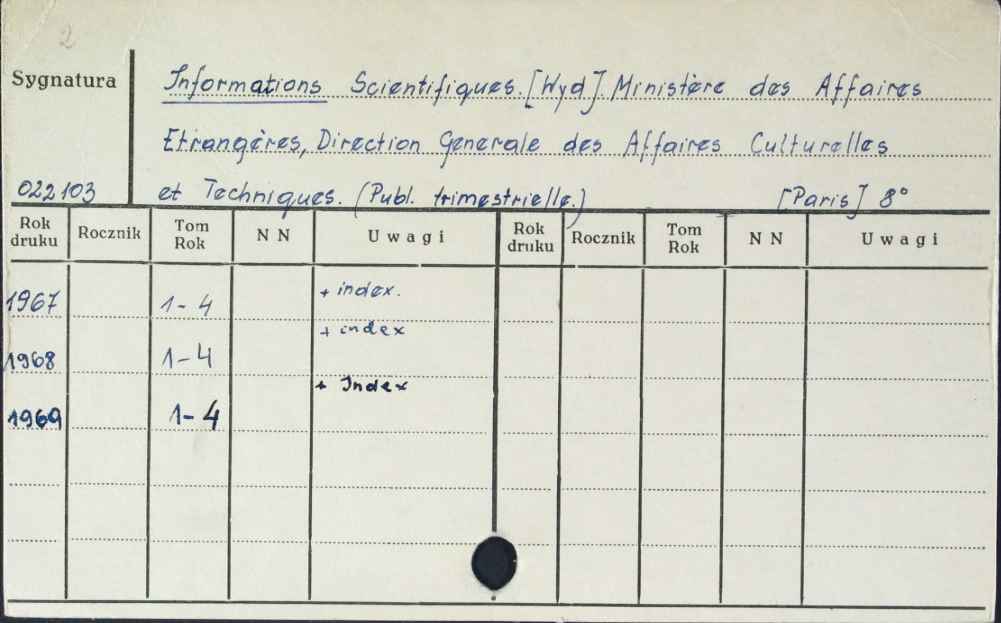 2
Sygnatura
Informations Scientifiques. [Wyd]. Ministère des Affaires
Etrangères, Direction Generale des Affaires Culturelles
022103 et Techniques. (Publ. trimestrielle.) [Paris] 8°
Rok druku Rocznik Tom Rok N N Uwagi Rok druku Rocznik Tom Rok N N Uwagi
1967 1-4 + index.
1968 1-4 + index
1969 1-4 + Index